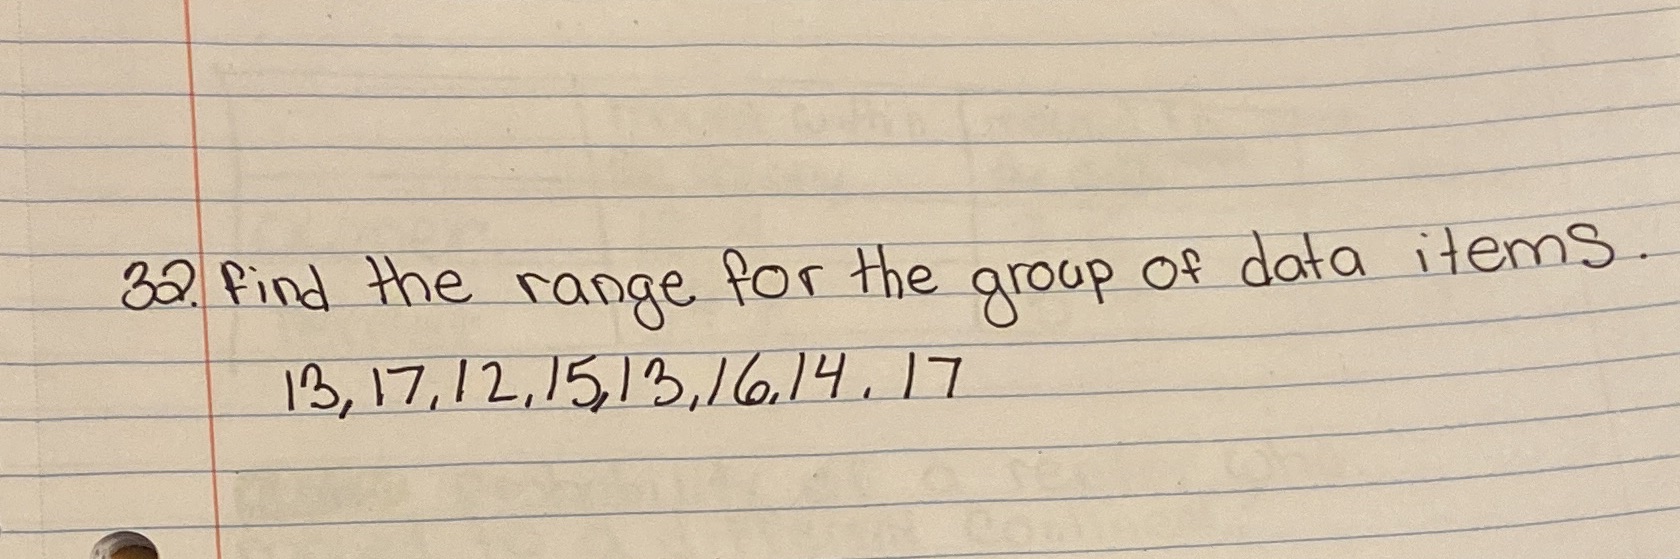 32. Find the range for the group of data items.
13, 17, 12, 15, 13, 16, 14, 17